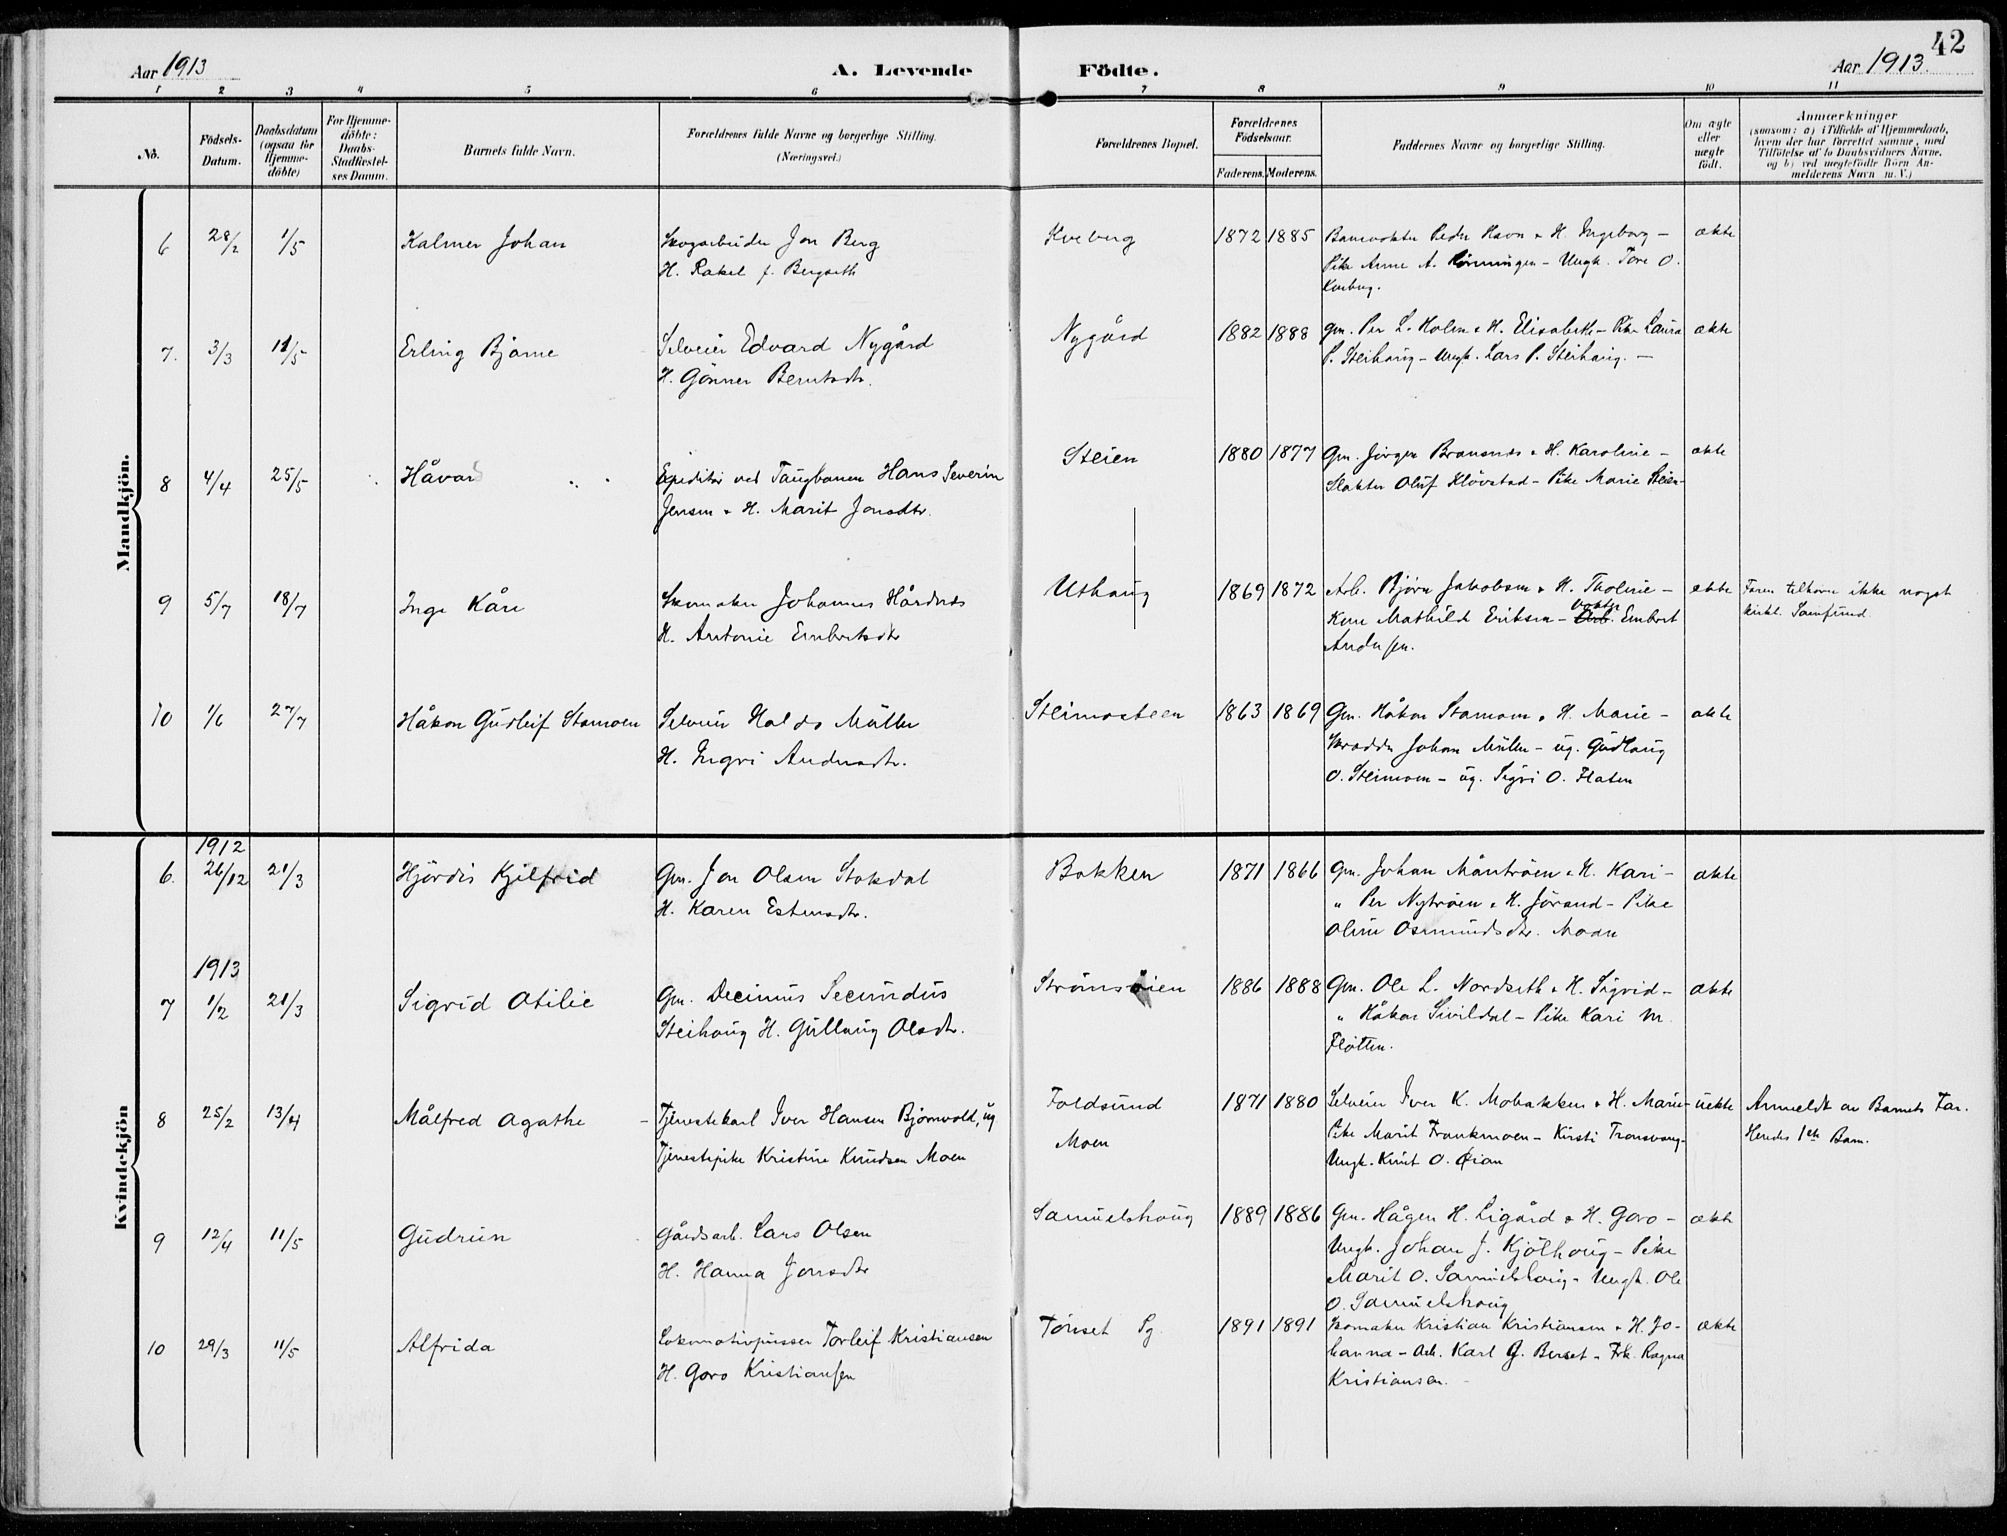 42
Aar 1913
A. Levende
Födte.
Aar 1913.
1 2 3 4 5 6 7 8 9 10 11
No.
Födsels-
Datum.
Daabsdatum
(ogsaa for
Hjemme-
döbte)
For Hjemme-
döbte:
Daabs-
Stadfæstel-
ses Datum.
Barnets fulde Navn.
Forældrenes fulde Navne og borgerlige Stilling.
(Næringsvei.)
Forældrenes Bopæl.
Forældrenes
Födselsaar.
Faderens. Moderens.
Faddernes Navne og borgerlige Stilling.
Om ægte
eller
uægte
födt.
Anmærkninger
(saasom: a) i Tilfælde af Hjemmedaab,
hvem der har forrettet samme, med
Tilföielse af to Daabsvidners Navne,
og b) ved uægtefödte Börn An-
melderens Navn m. V.)
Mandkjön.
6 28/2 1/5 Kalmer Johan
Skogarbeider Jon Berg
H. Rakel f. Bergseth
Kveberg
1872 1885
Banevokter Peder Havn & H. Ingeborg –
Pike Anne A. Rønningen – Ungk. Tore O.
Kveberg.
ekte
7. 3/3 11/5 Erling Bjarne
Selveier Edvard Nygård
H. Gönner Berntsdtr.
Nygård
1882 1888
Gm. Per L. Holm & H. Elisabeth – Pike Laura
P. Steihaug – Ungk. Lars P. Steihaug. –
ekte
8 4/4 25/5 Håvar
Expeditör ved Taugbanen Hans Severin
Jensen & H. Marit Jonsdtr.
Steien
1880 1877
Gm. Jörgen Bransnes & H. Karoline –
Slakter Oluf Klövstad – Pike Marie Steien–
ekte
9 5/7 18/7 Inge Kåre
Skomaker Johannes Hårdnes
H. Antonie Embertsdtr
Uthaug
1869 1872
Arb. Björn Jakobsen & H. Tholine –
Kone Mathilde Eriksen – Arb. Embert
Andersen.
ekte
Faren tilhører ikke noget
kirkl. Samfund.
10 1/6 27/7 Håkon Gudleif Stamoen
Selveier Haldo Müller
H. Ingri Andersdtr.
Steimosteen
1863 1869
Gm. Håkon Stamoen & H. Marie –
Skrædder Johan Müller – ug. Gudlaug
O. Steimoen – ug. Sigri O. Flaten
ekte
Kvindekjön
1912
6. 26/12 21/3 Hjördis Kjilfrid
Gm. Jon Olsen Stokdal
H. Karen Estensdtr.
Bakken
1871 1866
Gm. Johan Måntröen & H. Kari –
" Per Nytröen & H. Jörand – Pike
Oline Osmundsdtr. Moan
ekte
1913
7 1/2 21/3 Sigrid Otilie
Gm. Decimus Secundus
Steihaug H. Gullaug Olsdtr.
Strömsöien
1886 1888
Gm. Ole L. Nordseth & H. Sigrid –
" Håkon Sivildal – Pike Kari M.
Fløtten.
ekte
8 25/2 13/4 Målfred Agathe
Tjenestekarl Iver Hansen Bjørnvold, ug
Tjenestepike Kristine Knudsen Moen
Foldsund
Moen
1871 1880
Selveier Iver K. Mobakken & H. Marie –
Pike Marit Frankmoen – Kirsti Tronsvang–
Ungk. Knut O. Øian
uekte
Anmeldt av Barnets Far.
Hendes 1ste Barn.
9 12/4 11/5 Gudrun
Gårdsarb. Lars Olsen
H. Hanna Jonsdtr
Samuelshaug
1889 1886
Gm. Hågen H. Ligård & H. Goro –
Ungk. Johan J. Kjölhaug – Pike
Marit O. Samuelshaug – Ungk. Ole
O. Samuelshaug
ekte
10 29/3 11/5 Alfrida
Lokomotivpusser Torleif Kristiansen
H. Goro Kristiansen
Tönset Sg.
1891 1891
Skomaker Kristian Kristiansen & H. Jo-
hanna – Arb. Karl G. Berset – Frk. Ragna
Kristiansen. –
ekte